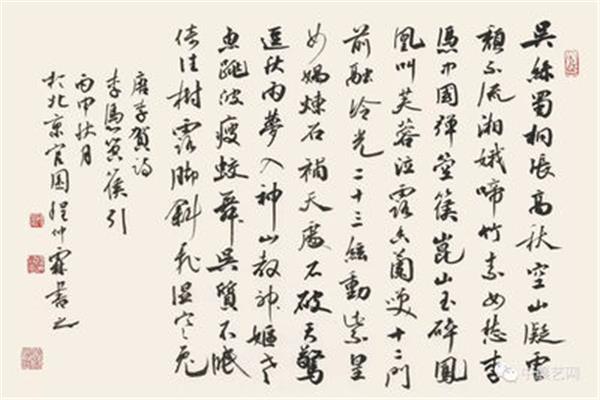 吳絲蜀桐張高秋空山凝雲
頹不流湘娥啼竹素女愁李
憑中國彈箜篌崑山玉碎鳳
凰叫芙蓉泣露香蘭笑十二門
前融冷光二十三絲動紫皇
女媧煉石補天處石破天驚
逗秋雨夢入神山教神嫗老
魚跳波瘦蛟舞吳質不眠
倚桂樹露腳斜飛濕寒兔
唐李賀詩
李憑箜篌引
丙申秋月
於北京官園程仲霖書之